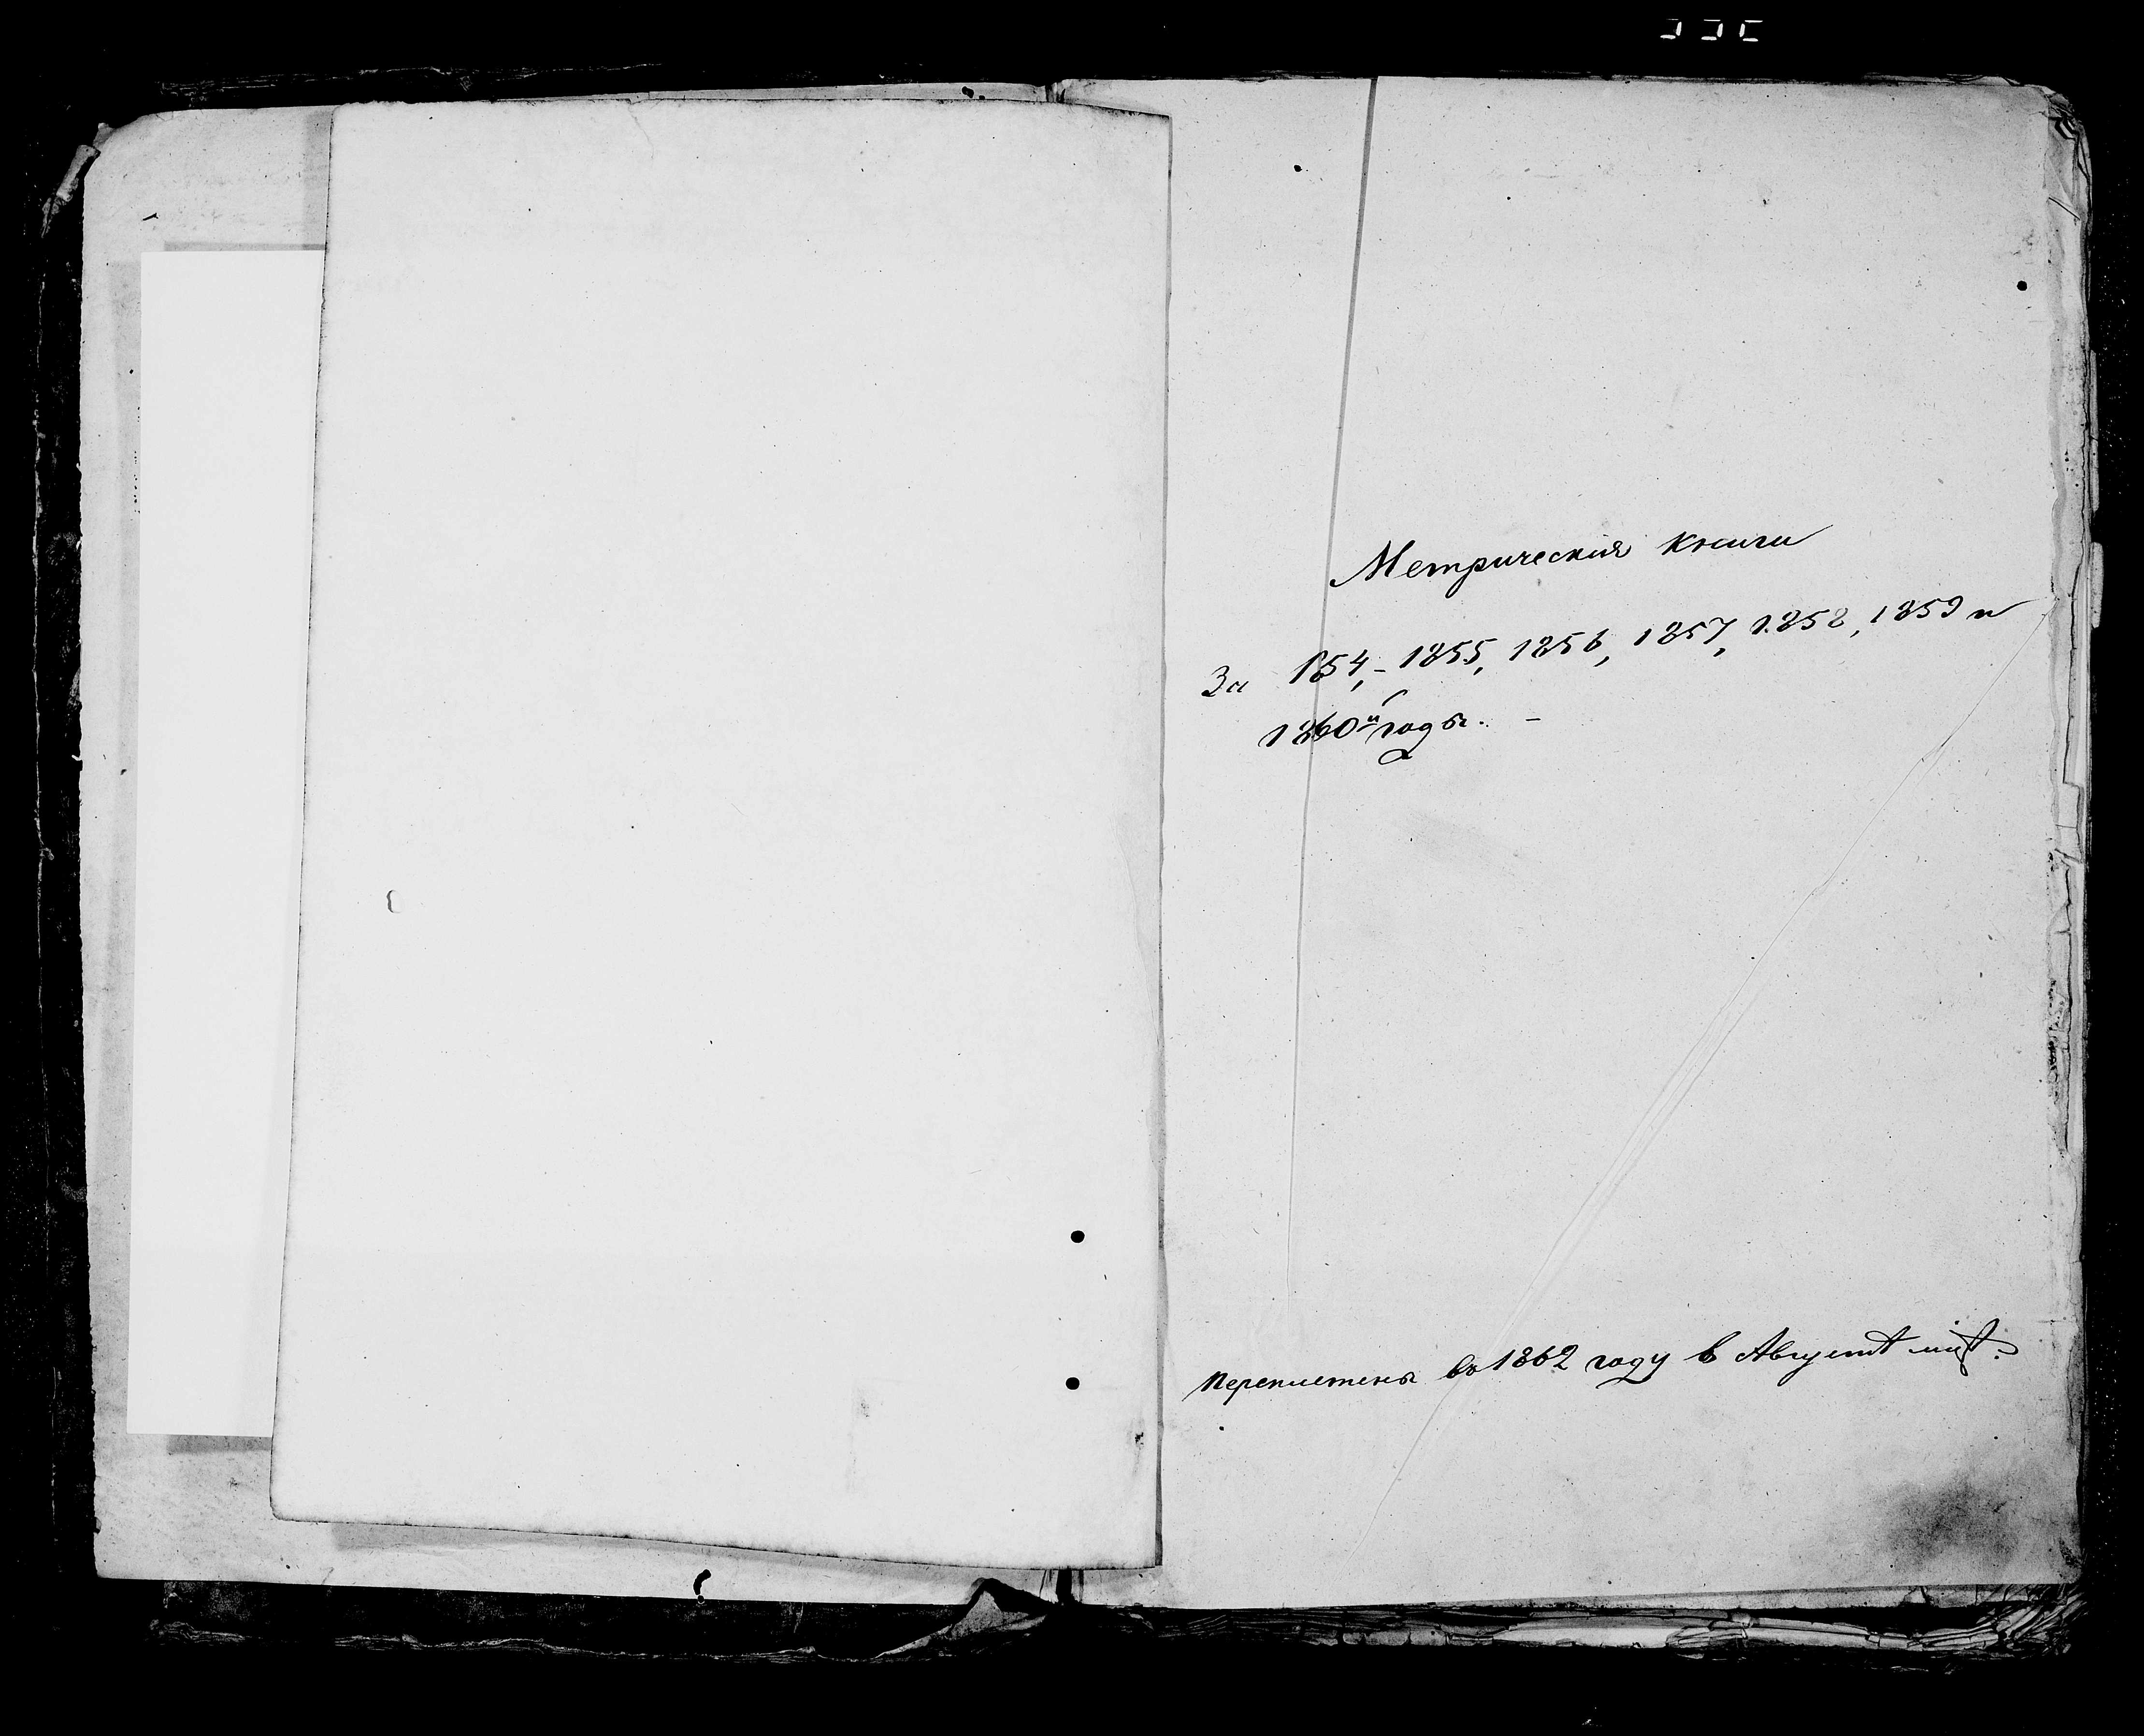 Метрическия книги
За 1854,- 1855, 1856, 1857, 1858, 1859 и
1860й годы. -
Переплетена въ 1862 году в Августѣ